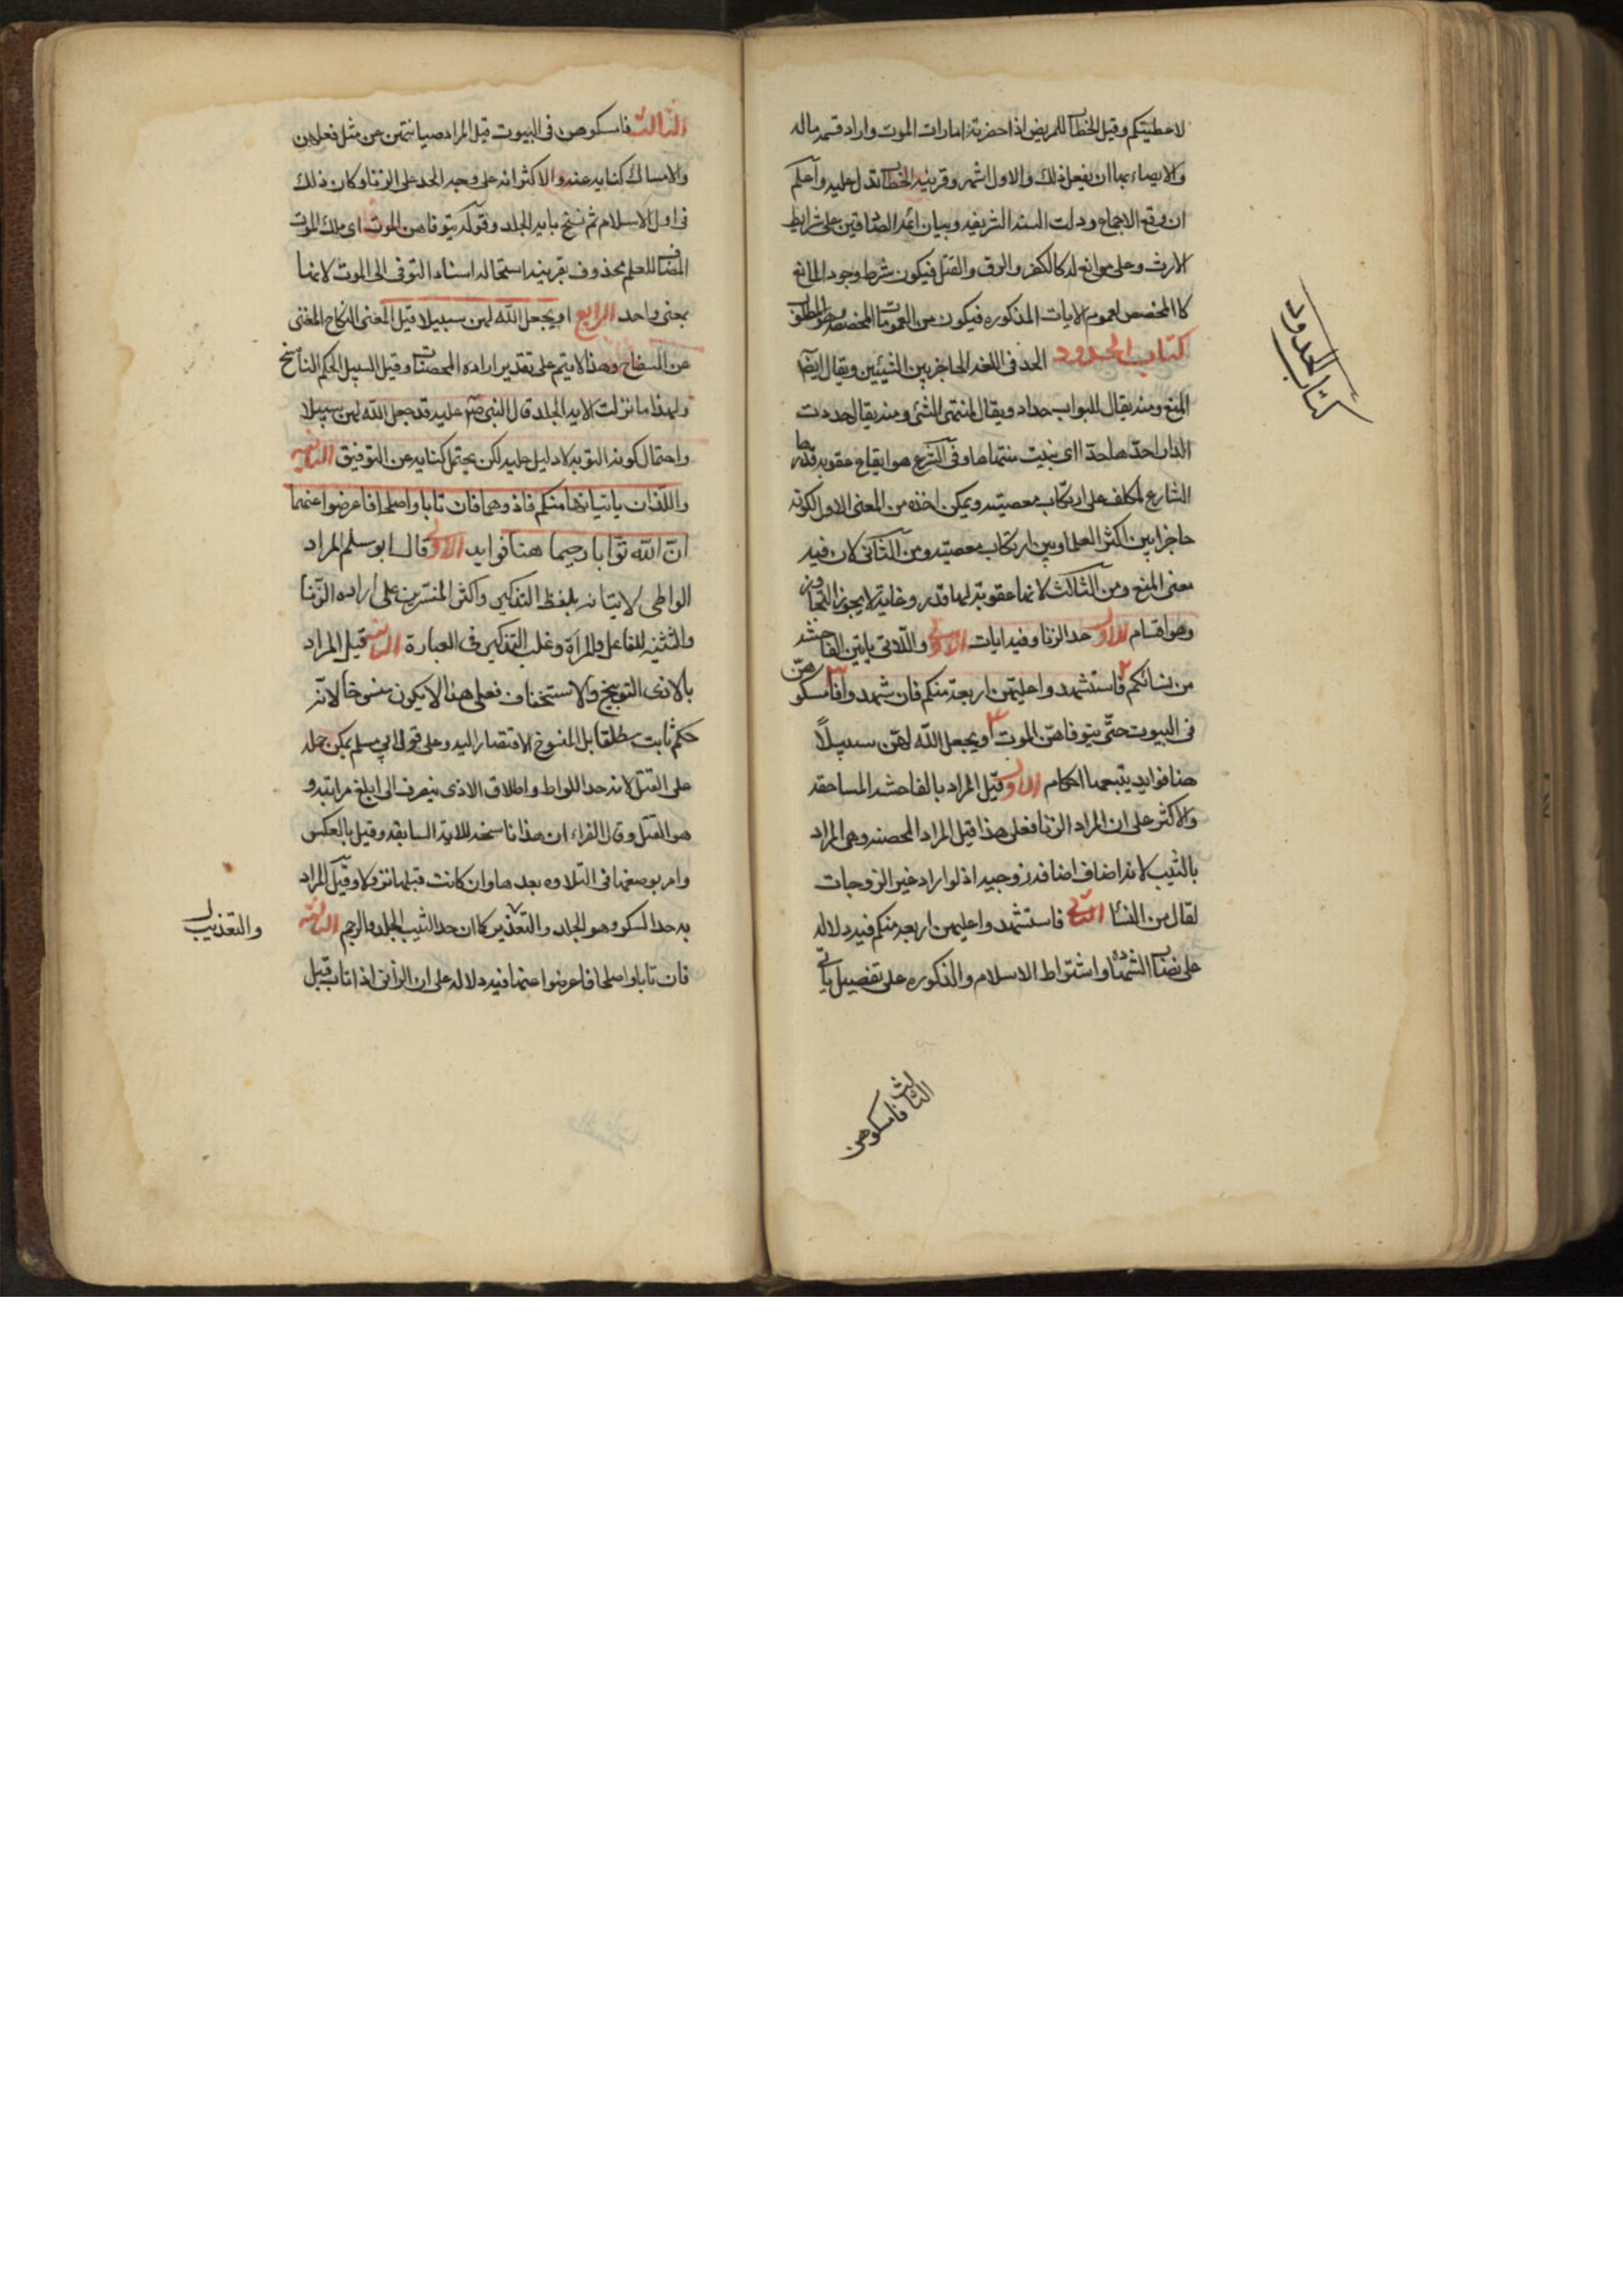 لاعطيتكم وقيل الخطاب للمريض اذا حضرته امارات الموت واراد قسمه ماله
والايصاء بها ان يفعل ذلك والاول اشهر وقرينه الخطاب تدل عليه واعلم
ان وقع الاجماع ودلت السنه الشريفه وبيان ائمه الصادقين على شرايط
الارث وعلى موانع له كالكفر والرق والقتل فيكون شرط وجود المانع
كالمخصص لعموم الايات المذكوره فيكون من العمومات المخصصه
كتاب الحدود الحد فى اللغه الحاجز بين الشيئين ويقال ايضا
المنع ومنه يقال للبواب حداد ويقال لمنتهى الشئ ومنه يقال حددت
الدار احدها حدا اى بينت منتهاها وفى الشرع هو ايقاع عقوبه قدرها
الشارع لمكلف على ارتكاب معصيته ويمكن اخذه من المعنى الاول لكونه
حاجزا بين اكثر العلما وبين ارتكاب معصيته ومن الثانى لان فيه
معنى المنع ومن الثالث لانها عقوبة لها قدر وغاية لا يجوز التجاوز
وهو اقسام الاول حد الزنا وفيه ايات الاولى واللاتى ياتين الفاحشه
من نسائكم فاستشهدوا عليهن اربعة منكم فان شهدوا فامسكوهن
فى البيوت حتى يتوفاهن الموت او يجعل الله لهن سبيلاً
هنا فوايد يتبعها احكام الاول قيل المراد بالفاحشه المساحقه
والاكثر على ان المراد الزنا فعلى هذا قيل المراد المحصنه وهى المراد
بالثيب لانه اضاف اضافه زوجيه اذ لو اراد غير الزوجات
لقال من النسا الثانى فاستشهدوا عليهن اربعه منكم فيه دلاله
على نصاب الشهاده واشتراط الاسلام والذكوره على تفصيل ياتى
الثالث فامسكوهن
كتاب الحدود
الثالث فامسكوهن فى البيوت قيل المراد صيانتهن عن مثل فعلهن
والامساك كنايه عنه والاكثر انه على وجه الحد على الزنا وكان ذلك
فى اول الاسلام ثم نسخ بايه الجلد وقوله يتوفاهن الموت اى ملك الموت
المضاف للعلم محذوف بقرينه استحاله اسناد التوفى الى الموت لانهما
بمعنى واحد الرابع او يجعل الله لهن سبيلا قيل المعنى النكاح المغنى
عن السفاح وهذا لا يتم على تقدير اراده المحصنات وقيل السبيل الحكم الناسخ
ولهذا ما نزلت الايه الجلد قال النبى صم عليه قد جعل الله لهن سبيلا
واحتمال كونه التوبه لا دليل عليه لكن يحتمل كنايه عن التوفيق الثانيه
واللذان ياتيانها منكم فاذوهما فان تابا واصلحا فاعرضوا عنهما
ان الله توابا رحيما هنا فوايد الاولى قال ابو مسلم المراد
الواطى لاتيانه بلفظ التذكير واكثر المفسرين على اراده الزنا
والتثنيه للفاعل والمرأة وغلب التذكير فى العبارة الثانيه قيل المراد
بالاذى التوبيخ والاستخفاف فعلى هذا لا يكون منسوخا لانه
حكم ثابت مطلقا بل المنسوخ الاقتصار اليه وعلى قول ابى مسلم يمكن حمله
على القتل لانه حد اللواط واطلاق الاذى ينصرف الى ابلغ مراتبه و
هو القتل وقال الفراء ان هذا ناسخه للايه السابقه وقيل بالعكس
وامر بوضعها فى التلاوه بعدها وان كانت قبلها نزولا وقيل المراد
به حد السكر وهو الجلد والتعذير كما ان حد الثيب الجلد والرجم الثالثه
فان تابا واصلحا فاعرضوا عنهما فيه دلاله على ان الزانى اذا تاب قبل
والتعذيب